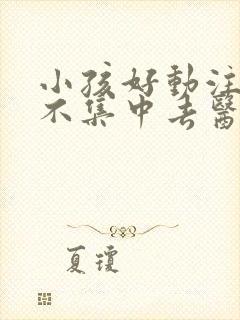 小孩好動注
不集中去醫
夏瓊